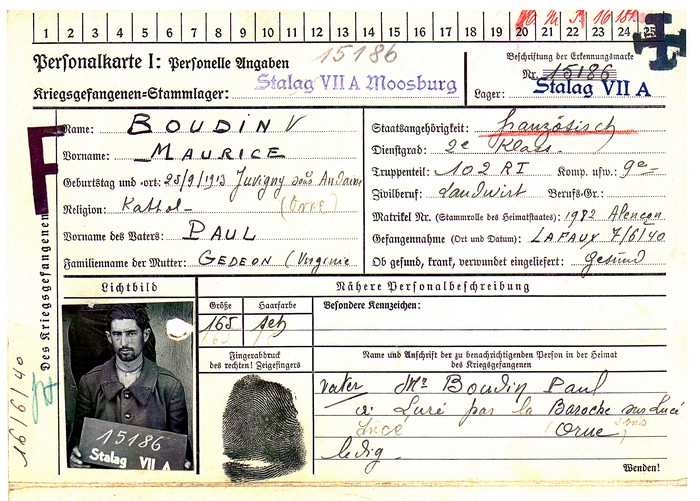 1 2 3 4 5 6 7 8 9 10 11 12 13 14 15 16 17 18 19 20 21 22 23 24 25
Personalkarte I: Personelle Angaben
15186
Kriegsgefangenen=Stammlager: Stalag VII A Moosburg
Beschriftung der Erkennungsmarke
Nr. 15186
Lager: Stalag VII A
F
Des Kriegsgefangenen
Name: BOUDIN
Vorname: MAURICE
Geburtstag und =ort: 25/9/1913 Juvigny sous Andaine
Religion: Kathol- (Orne)
Vorname des Vaters: PAUL
Familienname der Mutter: GEDEON (Virginie
Staatsangehörigkeit: französisch
Dienstgrad: 2e Klass.
Truppenteil: 102 RI Komp. usw.: 9e=
Zivilberuf: Landwirt Berufs=Gr.:
Matrikel Nr. (Stammrolle des Heimatstaates): 1982 Alençon
Gefangennahme (Ort und Datum): LAFAUX 7/6/40
Ob gesund, krank, verwundet eingeliefert: gesund
Lichtbild
15186
Stalag VII A
16/6/40
Nähere Personalbeschreibung
Größe Haarfarbe
165
Fingerabdruck
des rechten! Zeigefingers
Besondere Kennzeichen:
Name und Anschrift der zu benachrichtigenden Person in der Heimat
des Kriegsgefangenen
Vater Mr Boudin Paul
a Luré par la Baroche sous Lucé
Lucé Orne sous
ledig -
Wenden!